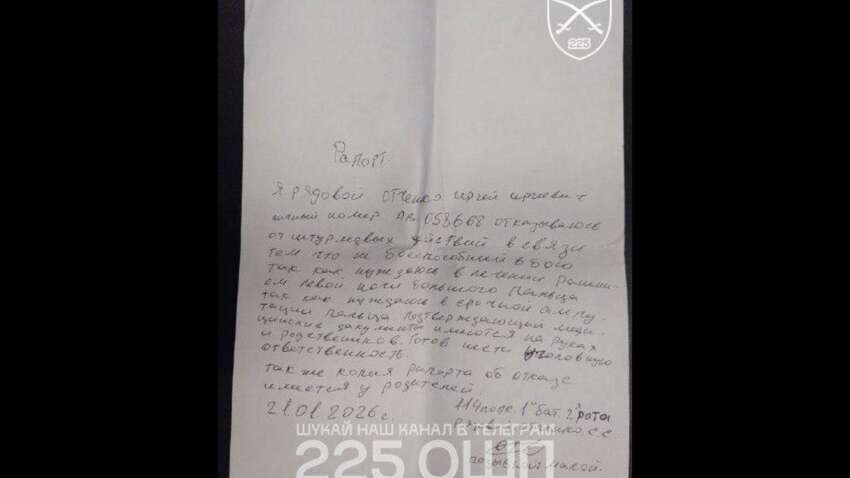 225
Рапорт
Я рядовой Отченко сергей сергеевич
личный номер АВ 058668 отказываюсь
от штурмовых действий в связи
тем что не боеспособный в бою
так как нуждаюсь в лечении
левой ноги большого Пальца
так как нуждаюсь в срочной ампу-
тации Пальца. Подтверждающии меди-
цинские дакументы имеются на руках
и родственников. Готов нести уголовную
ответственность.
так же копия рапорта об отказе
имеется у родителей
21.01.2026 г.
114 полк. 1й бат. 2я рота
С С
позывной малой.
ШУКАЙ НАШ КАНАЛ В ТЕЛЕГРАМ
225 ОШП